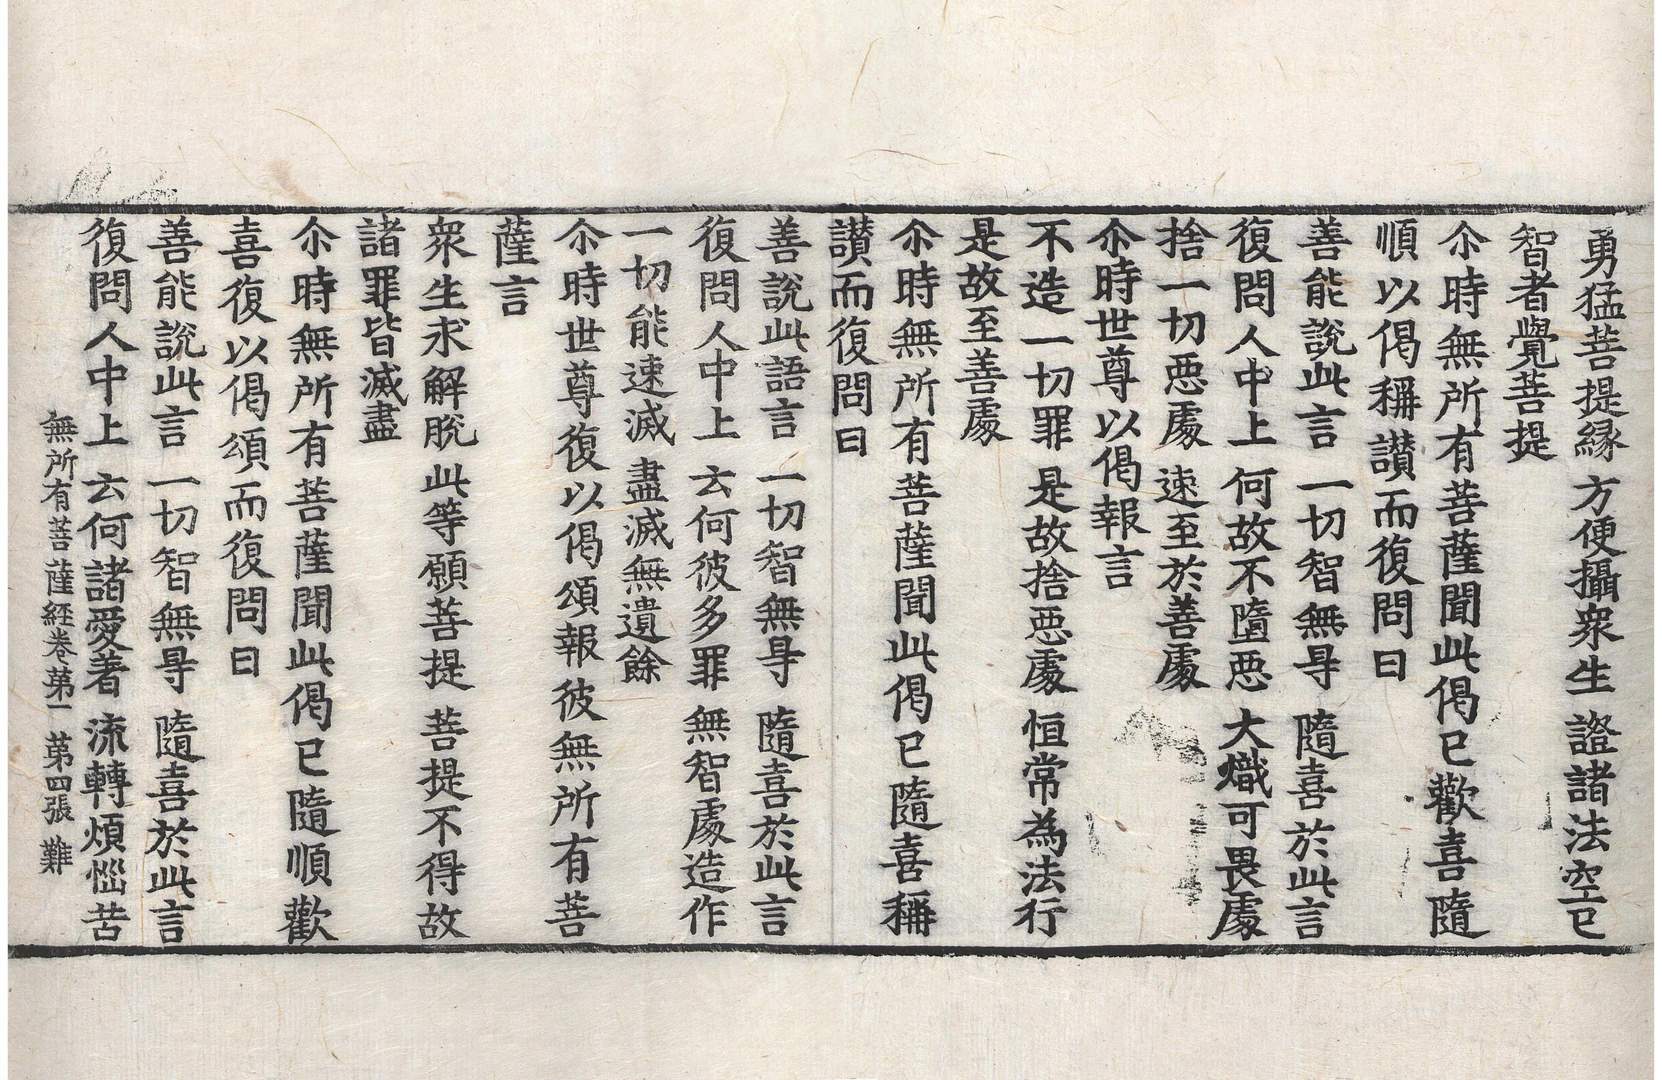 勇猛菩提緣 方便攝衆生 證諸法空已
智者覺菩提
尒時無所有菩薩聞此偈已歡喜隨
順以偈稱讃而復問曰
善能說此言 一切智無㝵 隨喜於此言
復問人中上 何故不墮惡 大熾可畏處
捨一切惡處 速至於善處
尒時世尊以偈報言
不造一切罪 是故捨惡處 恒常為法行
是故至善處
尒時無所有菩薩聞此偈已隨喜稱
讃而復問曰
善說此語言 一切智無㝵 隨喜於此言
復問人中上 云何彼多罪 無智處造作
一切能速滅 盡滅無遺餘
尒時世尊復以偈頌報彼無所有菩
薩言
衆生求解脫 此等願菩提 菩提不得故
諸罪皆滅盡
尒時無所有菩薩聞此偈已隨順歡
喜復以偈頌而復問曰
善能說此言 一切智無㝵 隨喜於此言
復問人中上 云何諸愛著 流轉煩惱苦
無所有菩薩經卷第一 第四張 難